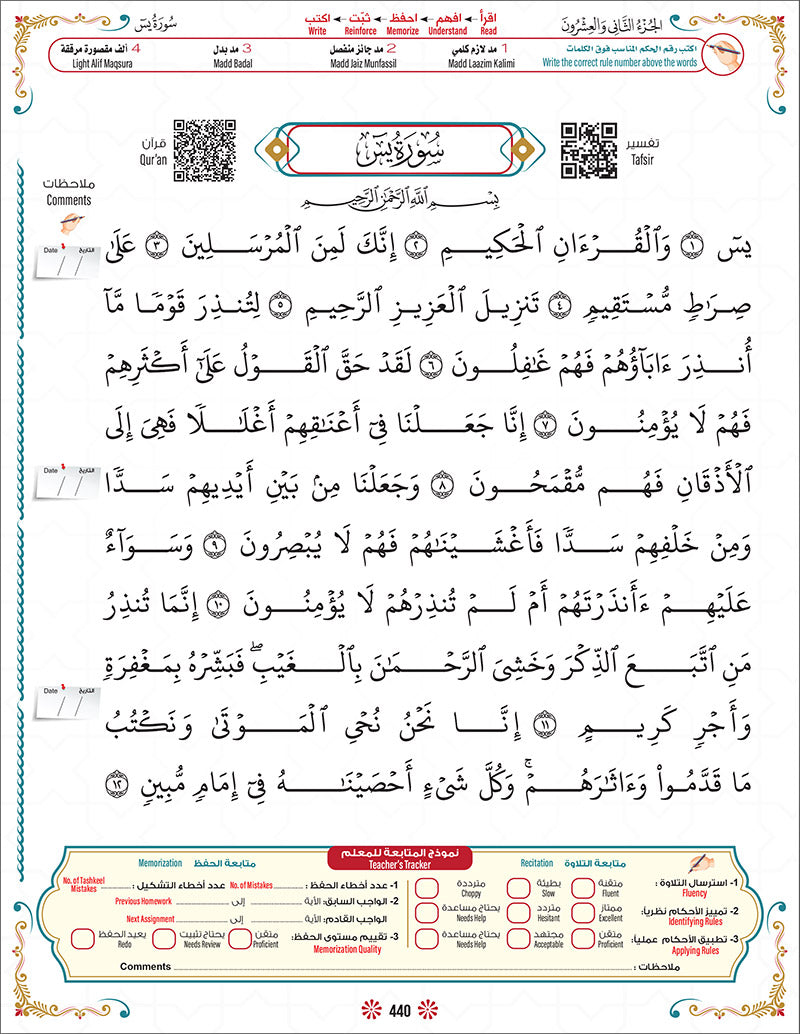 الجزء الثاني والعشرون
اقرأ ← افهم ← احفظ ← ثبّت ← اكتب
Read Understand Memorize Reinforce Write
سُورَةُ يسٓ
اكتب رقم الحكم المناسب فوق الكلمات
Write the correct rule number above the words
1 مد لازم كلمي
Madd Laazim Kalimi
2 مد جائز منفصل
Madd Jaiz Munfassil
3 مد بدل
Madd Badal
4 ألف مقصورة مرققة
Light Alif Maqsura
تفسير
Tafsir
سُورَةُ يسٓ
قرآن
Qur'an
ملاحظات
Comments
بِسْمِ ٱللَّهِ ٱلرَّحْمَٰنِ ٱلرَّحِيمِ
يسٓ ١ وَٱلْقُرْءَانِ ٱلْحَكِيمِ ٢ إِنَّكَ لَمِنَ ٱلْمُرْسَلِينَ ٣ عَلَىٰ
التاريخ Date / /
صِرَٰطٍ مُّسْتَقِيمٍ ٤ تَنزِيلَ ٱلْعَزِيزِ ٱلرَّحِيمِ ٥ لِتُنذِرَ قَوْمًا مَّآ
أُنذِرَ ءَابَآؤُهُمْ فَهُمْ غَٰفِلُونَ ٦ لَقَدْ حَقَّ ٱلْقَوْلُ عَلَىٰٓ أَكْثَرِهِمْ
فَهُمْ لَا يُؤْمِنُونَ ٧ إِنَّا جَعَلْنَا فِىٓ أَعْنَٰقِهِمْ أَغْلَٰلًا فَهِىَ إِلَى
ٱلْأَذْقَانِ فَهُم مُّقْمَحُونَ ٨ وَجَعَلْنَا مِنۢ بَيْنِ أَيْدِيهِمْ سَدًّا
التاريخ Date / /
وَمِنْ خَلْفِهِمْ سَدًّا فَأَغْشَيْنَٰهُمْ فَهُمْ لَا يُبْصِرُونَ ٩ وَسَوَآءٌ
عَلَيْهِمْ ءَأَنذَرْتَهُمْ أَمْ لَمْ تُنذِرْهُمْ لَا يُؤْمِنُونَ ١٠ إِنَّمَا تُنذِرُ
مَنِ ٱتَّبَعَ ٱلذِّكْرَ وَخَشِىَ ٱلرَّحْمَٰنَ بِٱلْغَيْبِ ۖ فَبَشِّرْهُ بِمَغْفِرَةٍ
التاريخ Date / /
وَأَجْرٍ كَرِيمٍ ١١ إِنَّا نَحْنُ نُحْىِ ٱلْمَوْتَىٰ وَنَكْتُبُ
مَا قَدَّمُوا۟ وَءَاثَٰرَهُمْ ۚ وَكُلَّ شَىْءٍ أَحْصَيْنَٰهُ فِىٓ إِمَامٍ مُّبِينٍ ١٢
نموذج المتابعة للمعلم
Teacher's Tracker
متابعة التلاوة Recitation
1- استرسال التلاوة : متقنة بطيئة مترددة
Fluency Fluent Slow Choppy
2- تمييز الأحكام نظرياً: ممتاز متردد يحتاج مساعدة
Identifying Rules Excellent Hesitant Needs Help
3- تطبيق الأحكام عملياً: متقن مجتهد يحتاج مساعدة
Applying Rules Proficient Acceptable Needs Help
متابعة الحفظ Memorization
1- عدد أخطاء الحفظ : No. of Mistakes عدد أخطاء التشكيل : No. of Tashkeel Mistakes
2- الواجب السابق: الآية إلى Previous Homework
الواجب القادم: الآية إلى Next Assignment
3- تقييم مستوى الحفظ: متقن يحتاج تثبيت يعيد الحفظ
Memorization Quality Proficient Needs Review Redo
ملاحظات : Comments
440